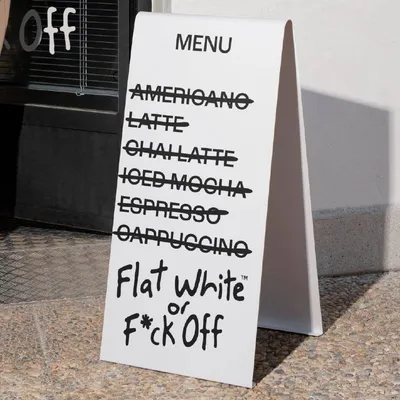 Off
MENU
AMERICANO
LATTE
CHAI LATTE
ICED MOCHA
ESPRESSO
CAPPUCCINO
Flat White™
or
F*ck Off